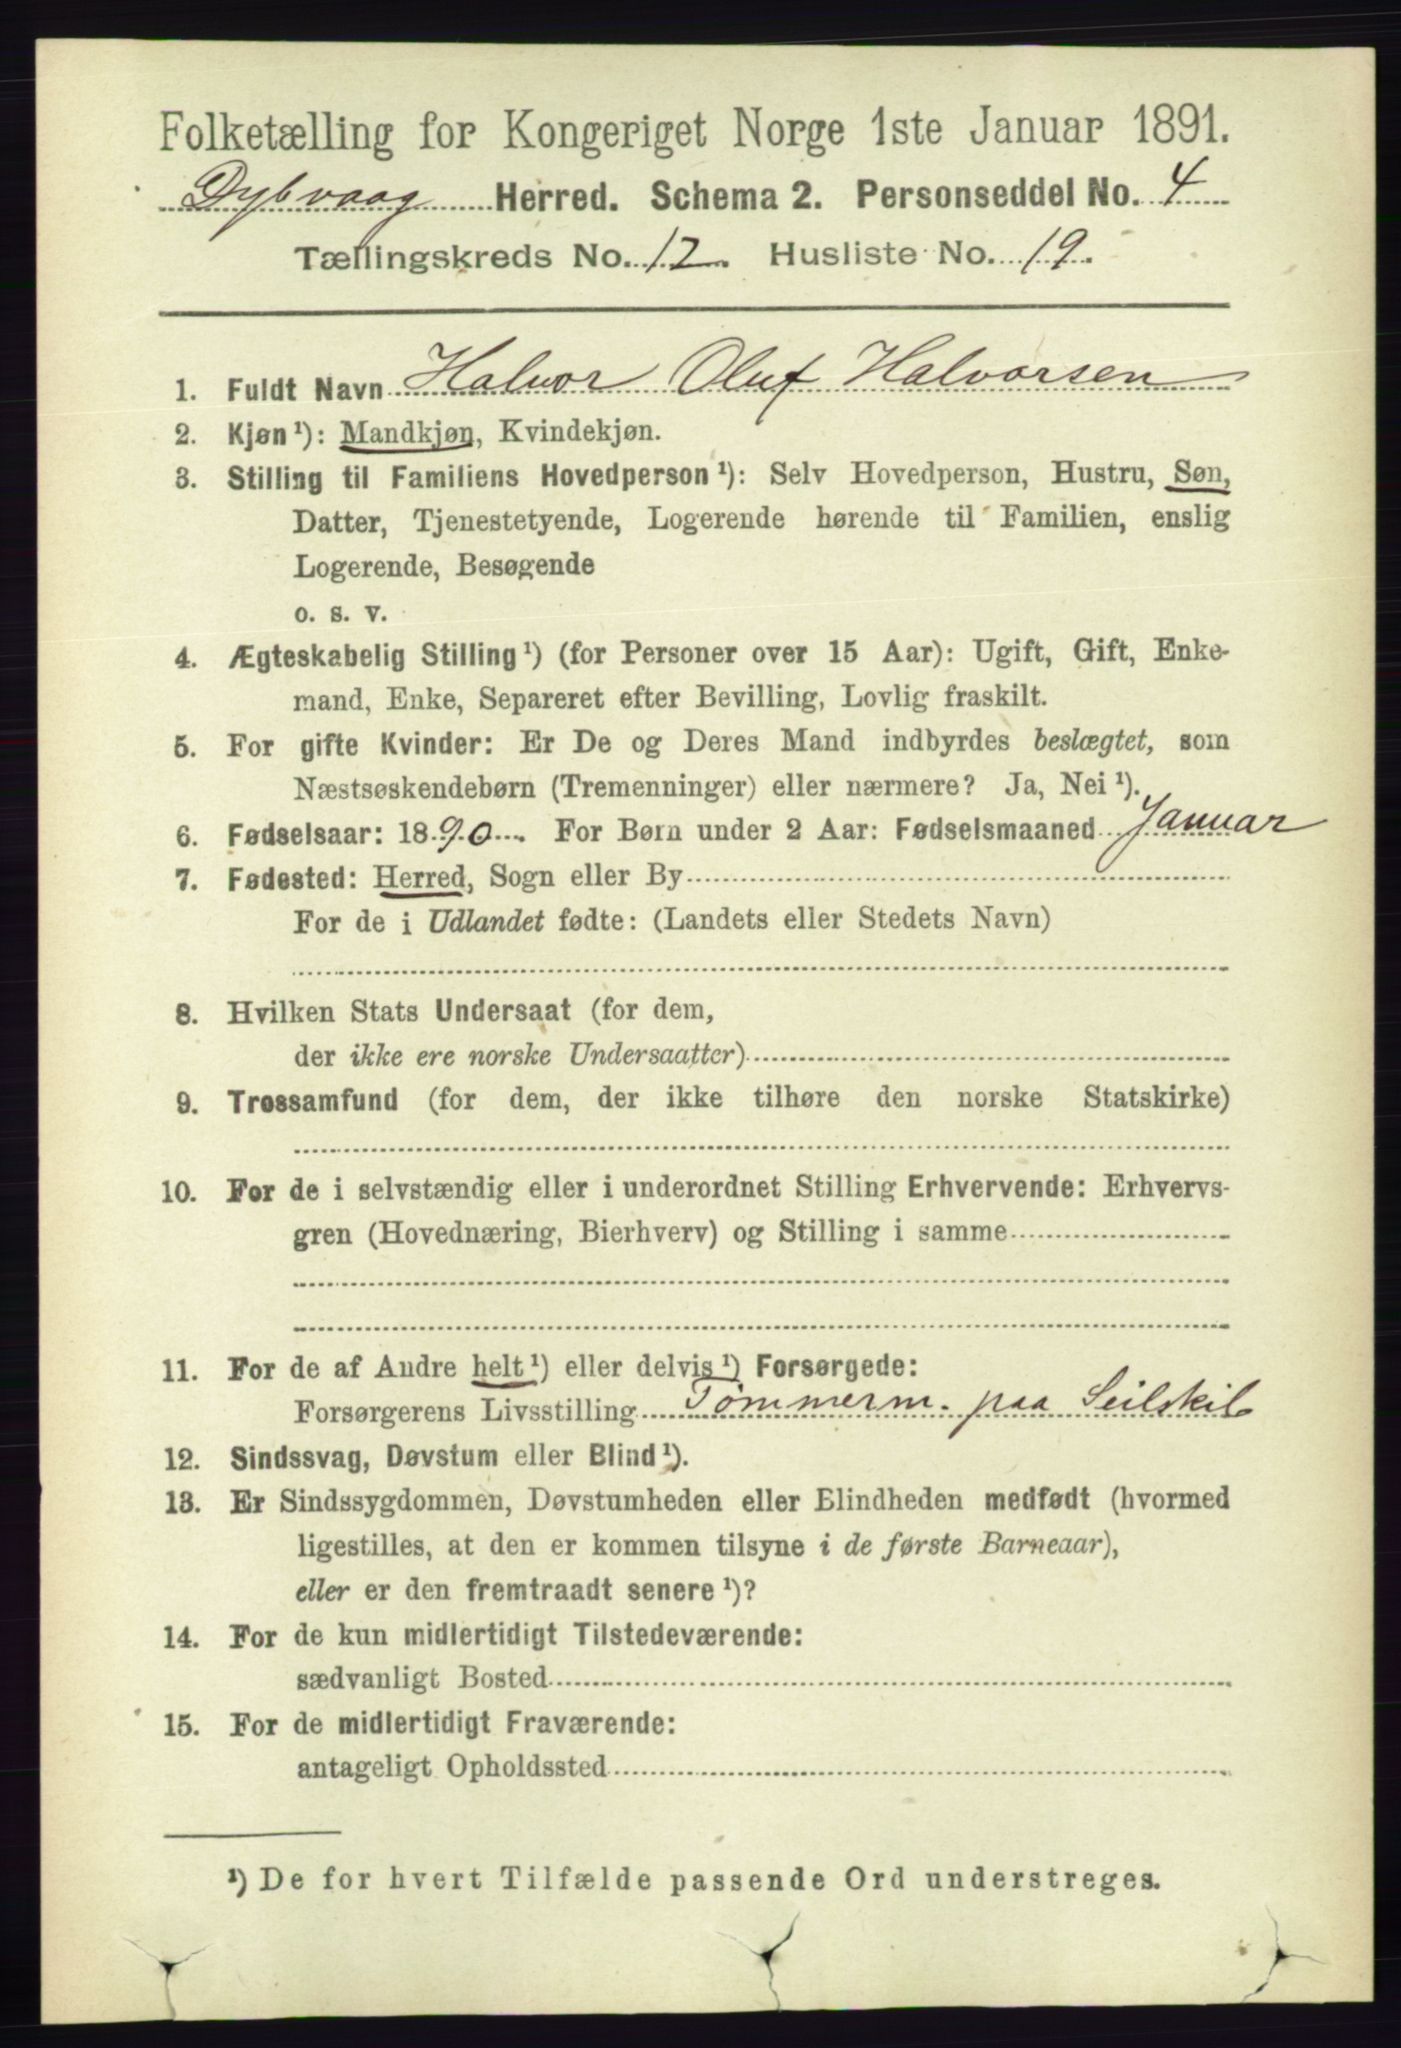 Folketælling for Kongeriget Norge 1ste Januar 1891.
Dybvaag Herred. Schema 2. Personseddel No. 4
Tællingskreds No. 12. Husliste No. 19.
1. Fuldt Navn Halvor Oluf Halvorsen
2. Kjøn ¹): Mandkjøn, Kvindekjøn.
3. Stilling til Familiens Hovedperson ¹): Selv Hovedperson, Hustru, Søn,
Datter, Tjenestetyende, Logerende hørende til Familien, enslig
Logerende, Besøgende
o. s. v.
4. Ægteskabelig Stilling ¹) (for Personer over 15 Aar): Ugift, Gift, Enke-
mand, Enke, Separeret efter Bevilling, Lovlig fraskilt.
5. For gifte Kvinder: Er De og Deres Mand indbyrdes beslægtet, som
Næstsøskendebørn (Tremenninger) eller nærmere? Ja, Nei ¹).
6. Fødselsaar: 1890. For Børn under 2 Aar: Fødselsmaaned Januar
7. Fødested: Herred, Sogn eller By
For de i Udlandet fødte: (Landets eller Stedets Navn)
8. Hvilken Stats Undersaat (for dem,
der ikke ere norske Undersaatter)
9. Trossamfund (for dem, der ikke tilhøre den norske Statskirke)
10. For de i selvstændig eller i underordnet Stilling Erhvervende: Erhvervs-
gren (Hovednæring, Bierhverv) og Stilling i samme
11. For de af Andre helt ¹) eller delvis ¹) Forsørgede:
Forsørgerens Livsstilling Tømmerm. paa Seilskib
12. Sindssvag, Døvstum eller Blind ¹).
13. Er Sindssygdommen, Døvstumheden eller Blindheden medfødt (hvormed
ligestilles, at den er kommen tilsyne i de første Barneaar),
eller er den fremtraadt senere ¹)?
14. For de kun midlertidigt Tilstedeværende:
sædvanligt Bosted
15. For de midlertidigt Fraværende:
antageligt Opholdssted
¹) De for hvert Tilfælde passende Ord understreges.